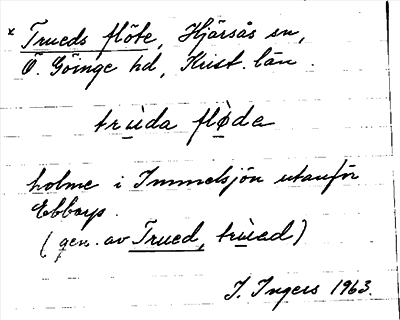 x Trueds flöte, Hjärsås sn,
Ö. Göinge hd, Krist. län.
trùda flø̀da
holme i Immelsjön utanför
Ebbarp.
(gen. av Trued, trùad)
I. Ingers 1963.